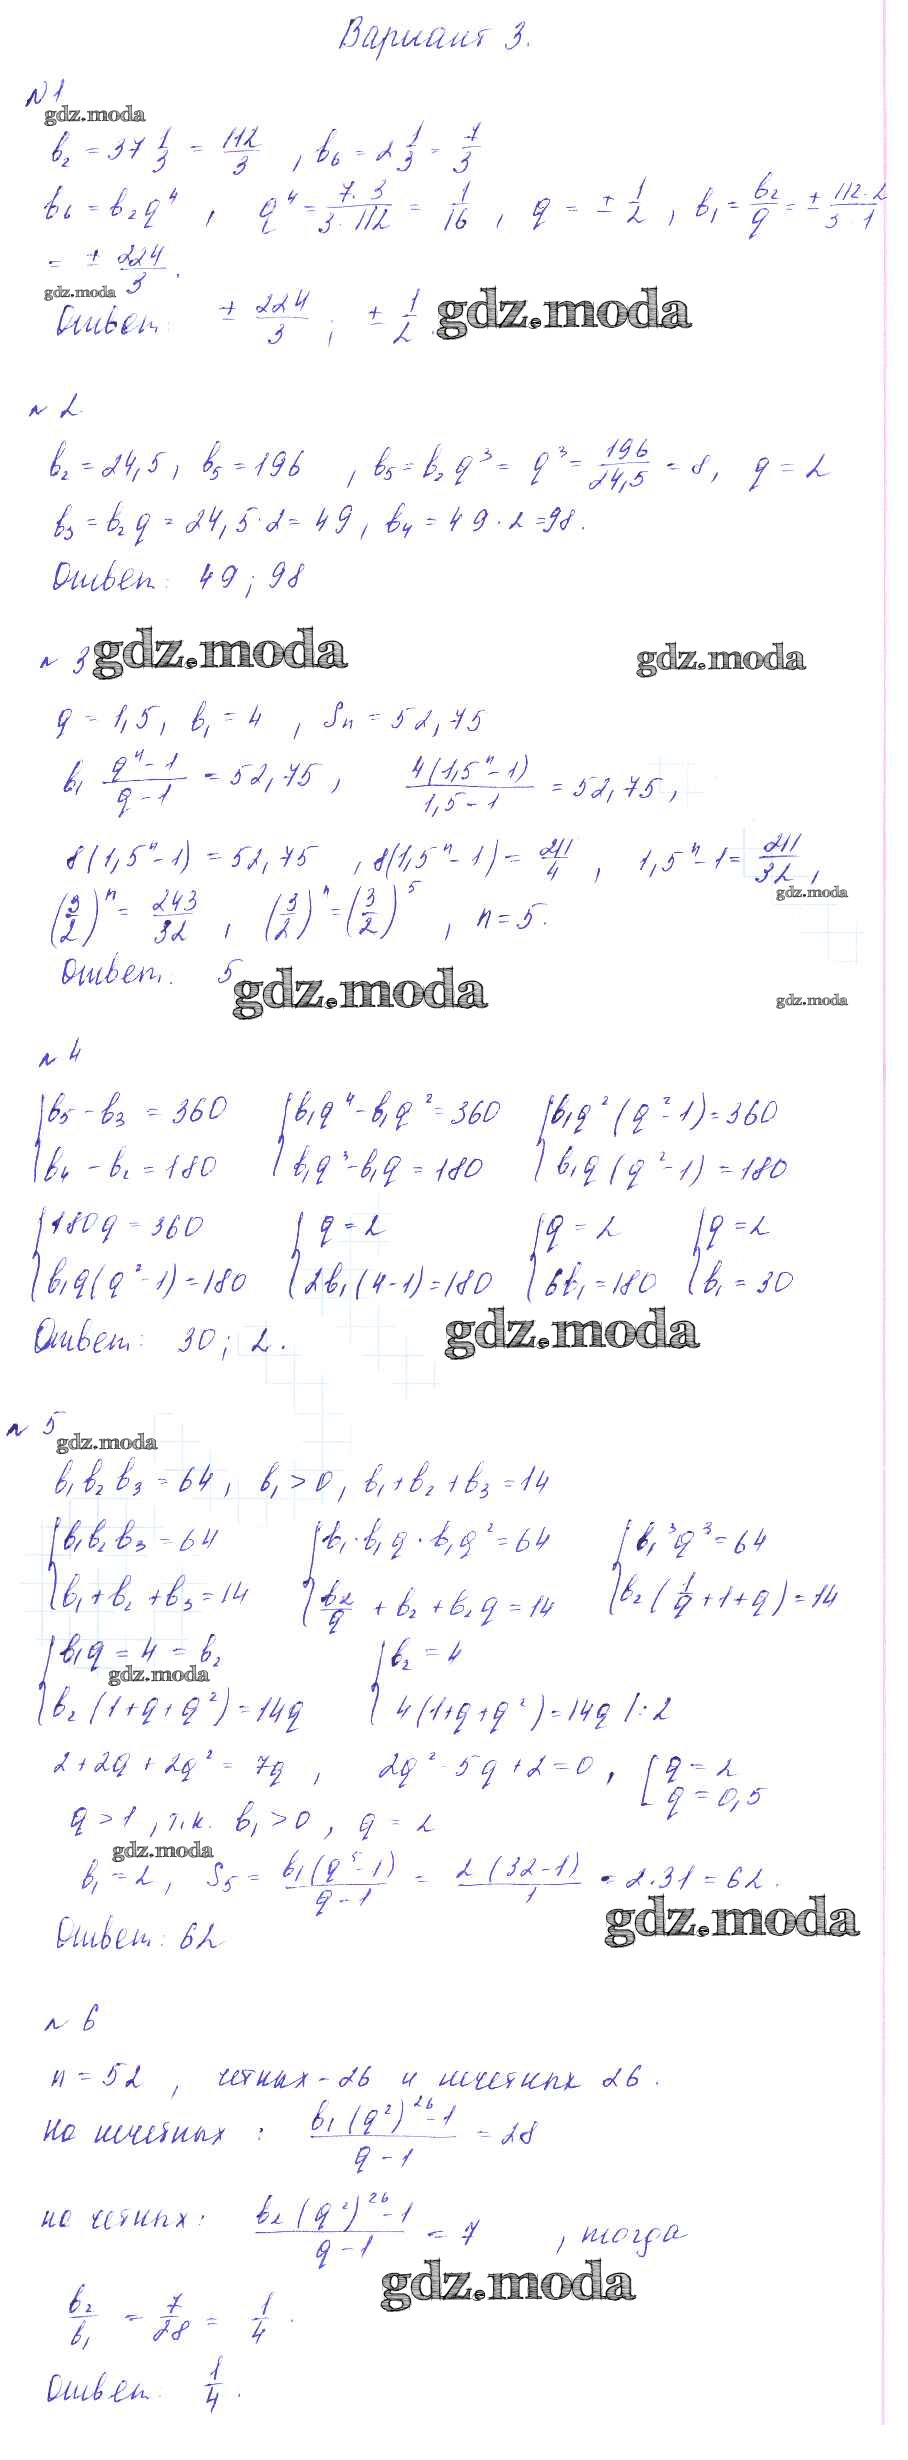 Вариант 3.
№1
gdz.moda
b₂ = 37 1/3 = 112/3 , b₆ = 2 1/3 = 7/3
b₆ = b₂q⁴ , q⁴ = 7·3/3·112 = 1/16 , q = ± 1/2 , b₁ = b₂/q = ± 112·2/3·1
= ± 224/3 .
gdz.moda
Ответ: ± 224/3 ; ± 1/2 . gdz.moda
№ 2
b₂ = 24,5 , b₅ = 196 , b₅ = b₂q³ = q³ = 196/24,5 = 8, q = 2
b₃ = b₂q = 24,5·2 = 49, b₄ = 49·2 = 98.
Ответ: 49; 98
№ 3 gdz.moda gdz.moda
q = 1,5, b₁ = 4 , Sₙ = 52,75
b₁ (qⁿ-1)/(q-1) = 52,75 , 4(1,5ⁿ-1)/(1,5-1) = 52,75 ,
8(1,5ⁿ-1) = 52,75 , 8(1,5ⁿ-1) = 211/4 , 1,5ⁿ-1 = 211/32 ,
gdz.moda
(3/2)ⁿ = 243/32 , (3/2)ⁿ = (3/2)⁵ , n = 5.
Ответ: 5
gdz.moda gdz.moda
№ 4
{b₅ - b₃ = 360 {b₁q⁴ - b₁q² = 360 {b₁q²(q²-1) = 360
{b₄ - b₂ = 180 {b₁q³ - b₁q = 180 {b₁q(q²-1) = 180
{180q = 360 {q = 2 {q = 2 {q = 2
{b₁q(q²-1) = 180 {2b₁(4-1) = 180 {6b₁ = 180 {b₁ = 30
Ответ: 30; 2. gdz.moda
№ 5
gdz.moda
b₁b₂b₃ = 64, b₁ > 0, b₁+b₂+b₃ = 14
{b₁b₂b₃ = 64 {b₁·b₁q·b₁q² = 64 {b₁³q³ = 64
{b₁+b₂+b₃ = 14 {b₂/q + b₂ + b₂q = 14 {b₂(1/q+1+q) = 14
{b₁q = 4 = b₂ {b₂ = 4
gdz.moda
{b₂(1+q+q²) = 14q {4(1+q+q²) = 14q |:2
2+2q+2q² = 7q , 2q²-5q+2 = 0 , [q = 2
[q = 0,5
q > 1 , т.к. b₁ > 0, q = 2
gdz.moda
b₁ = 2 , S₅ = b₁(q⁵-1)/(q-1) = 2(32-1)/1 = 2·31 = 62.
gdz.moda
Ответ: 62
№ 6
n = 52 , четных - 26 и нечетных 26.
на нечетных : b₁(q²)²⁶-1/q-1 = 28
на четных: b₂(q²)²⁶-1/q-1 = 7 , тогда
gdz.moda
b₂/b₁ = 7/28 = 1/4 .
Ответ: 1/4 .